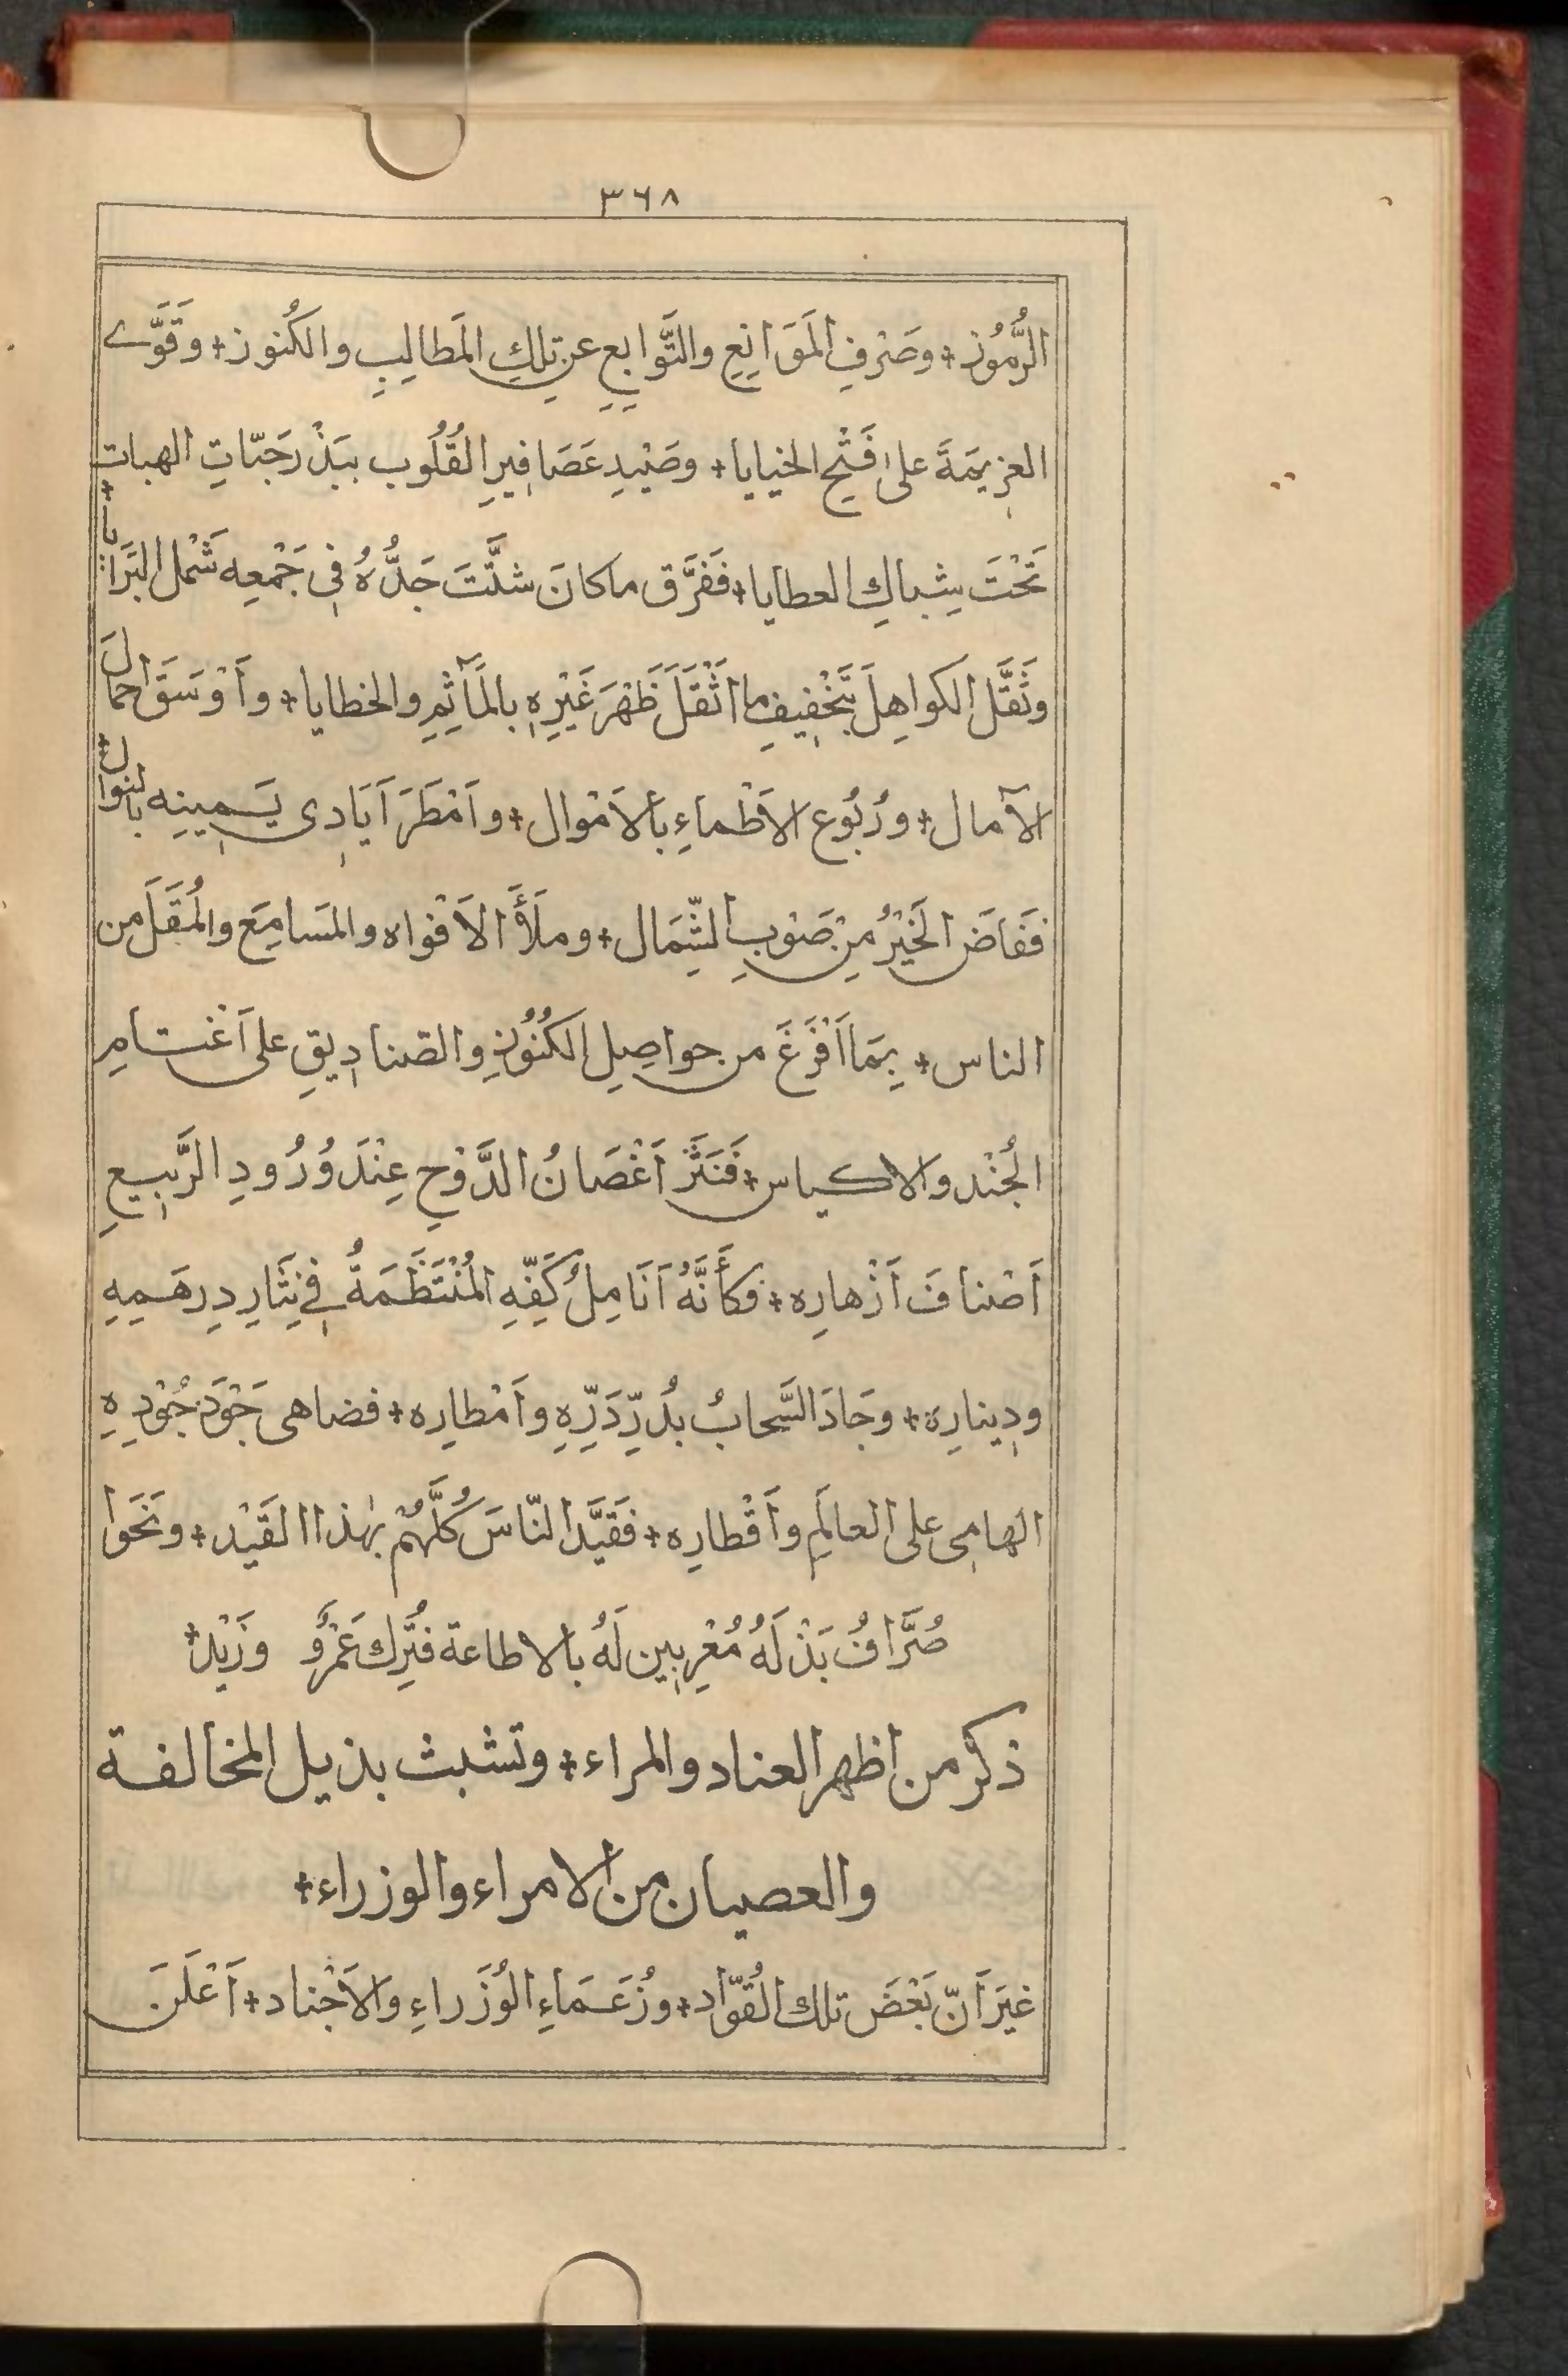 ٣٦٨
الرُّمُوْز + وصَرْفِ المَوَانِعِ والتَّوابِعِ عن تِلكِ المَطالِبِ والكُنوز + وقَوَّے
العزيمَةَ على فَتْحِ الخبايا + وصَيْدِ عَصَافِيرِ القُلُوب ببَذْر حَبّاتِ الهبات +
تَحْتَ شِباكِ العطايا + فَفَرَّق ما كانَ شتَّتَ جَدُّهُ فى جَمْعِه شَمْل البَرَايا +
وثَقَّل الكواهِلَ بتَخْفِيفِ ما اَثْقَلَ ظَهْرَ غَيْرِهِ بالمَآثِمِ والخطايا + وأَوْسَقَ احمالَ
الآمال + ورُبُوع الاَظْماءِ بالاَمْوال + واَمْطَرَ اَيَادِى يَمِينِه بالنوال +
ففَاضَ الخَيْرُ مِنْ صَوْبِ الشِّمَال + وملَأَ الاَفْواه والمَسامِعَ والمُقَلَ من
الناس + بِمَا اَفْرَغَ من حواصِلِ الكُنُوْزِ والصّنادِيقِ على اَغْتامِ
الجُنْد والاكياس + فَنَثَرَ اَغْصَانُ الدَّوْحِ عِنْدَ وُرُودِ الرَّبِيعِ
اَصْنافَ اَزْهارِه + فكأَنَّهُ اَنَامِلُ كَفِّهِ المُنْتَظَمَةُ في نِثَارِ دِرهَمِهِ
ودِينارِهِ + وجَادَ السَّحابُ بدُرِّ دَرِّهِ واَمْطارِه + فضاهى جَوْدَ جُوْدِهِ
الهامِى على العالَمِ واَقْطارِه + فقَيَّد النّاسَ كُلَّهُمْ بهٰذا القَيْد + ونَحَوا
صُرَّافُ بَذْلَهُ مُعْرِبِين لَهُ بالاطاعة فتُرِك عَمْرٌو وزَيْدٌ +
ذكر من اظهر العناد والمراء + وتشبث بذيل المخالفة
والعصيان من الامراء والوزراء +
غيَرَ أَنّ بَعْضَ تلك القُوّاد + وزُعَمَاءِ الوُزَراءِ والاَجْناد + اَعْلَنَ